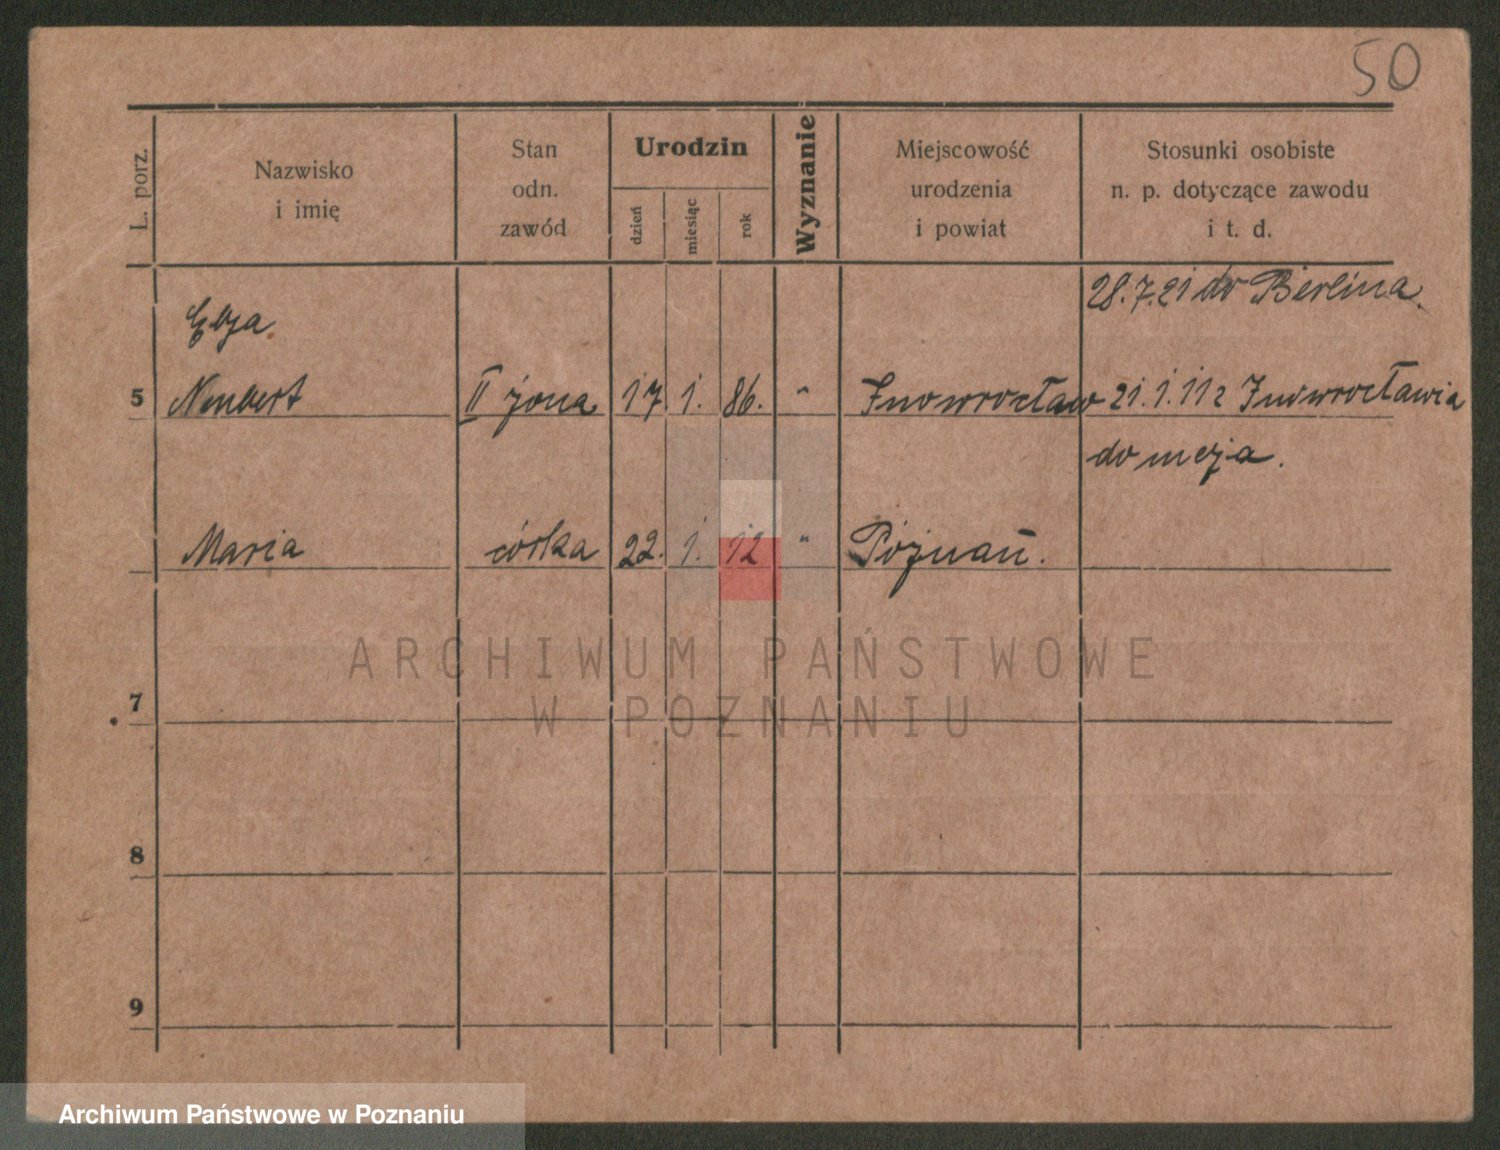 50
L. porz.
Nazwisko
i imię
Stan
odn.
zawód
Urodzin
dzień
miesiąc
rok
Wyznanie
Miejscowość
urodzenia
i powiat
Stosunki osobiste
n. p. dotyczące zawodu
i t. d.
28.7.21 do Berlina.
5 Neubert II żona 17 1. 86. " Inowrocław 21.1.11 z Inowrocławia
do męża.
Maria córka 22. 1. 12 " Poznań.
ARCHIWUM PAŃSTWOWE
W POZNANIU
7
8
9
Archiwum Państwowe w Poznaniu